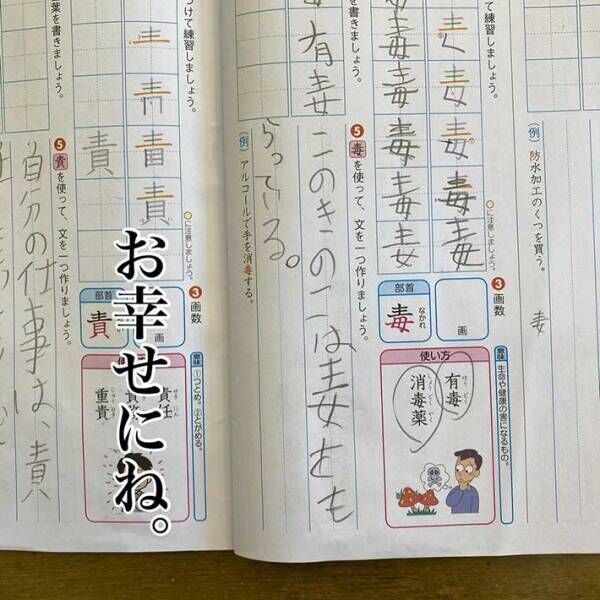 (例) 防水加工のくつを買う。
妻
3 画数
画
部首
なかれ
毒
意味 生命や健康の害になるもの。
使い方
有毒
ゆうどく
消毒薬
しょうどくやく
○に注意しましょう。
つけて練習しましょう。
5 毒 を使って、文を一つ作りましょう。
(例) アルコールで手を消毒する。
有妻
このきのこは妻をも
らっている。
葉を書きましょう。
3 画数
画
部首
責
意味 ①つとめ。②とがめる。
責任
せきにん
重責
○に注意しましょう。
つけて練習しましょう。
責
責
5 責 を使って、文を一つ作りましょう。
自分の仕事は、責
お幸せにね。